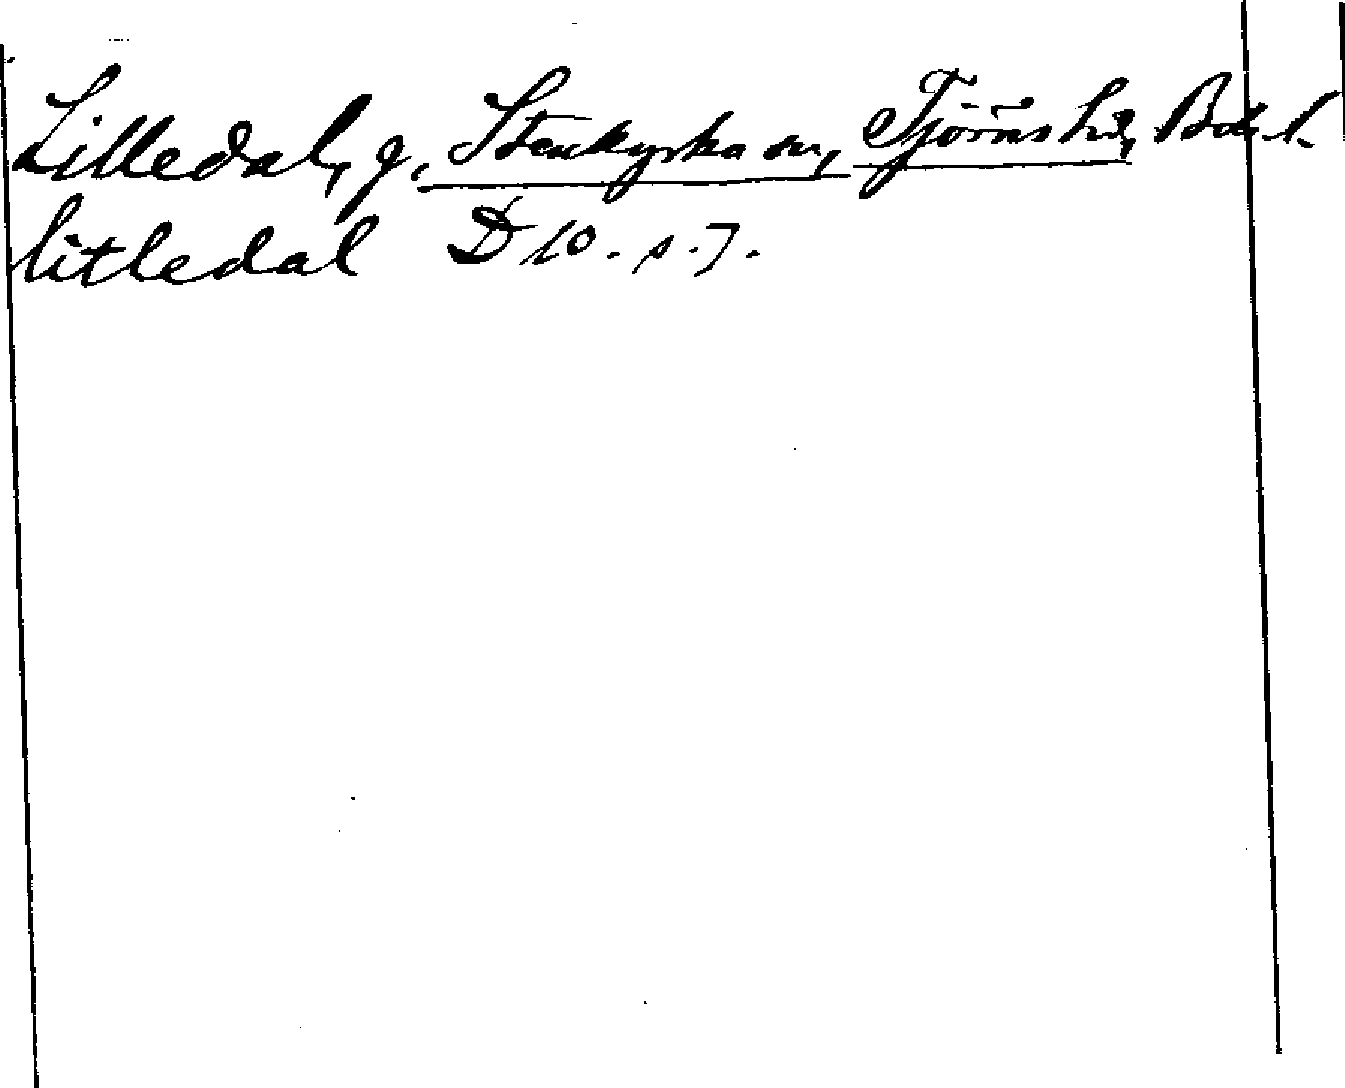 Lilledal, g. Stenkyrka sn, Tjörns hd, Boh l.
litledal D 10. s. 7.